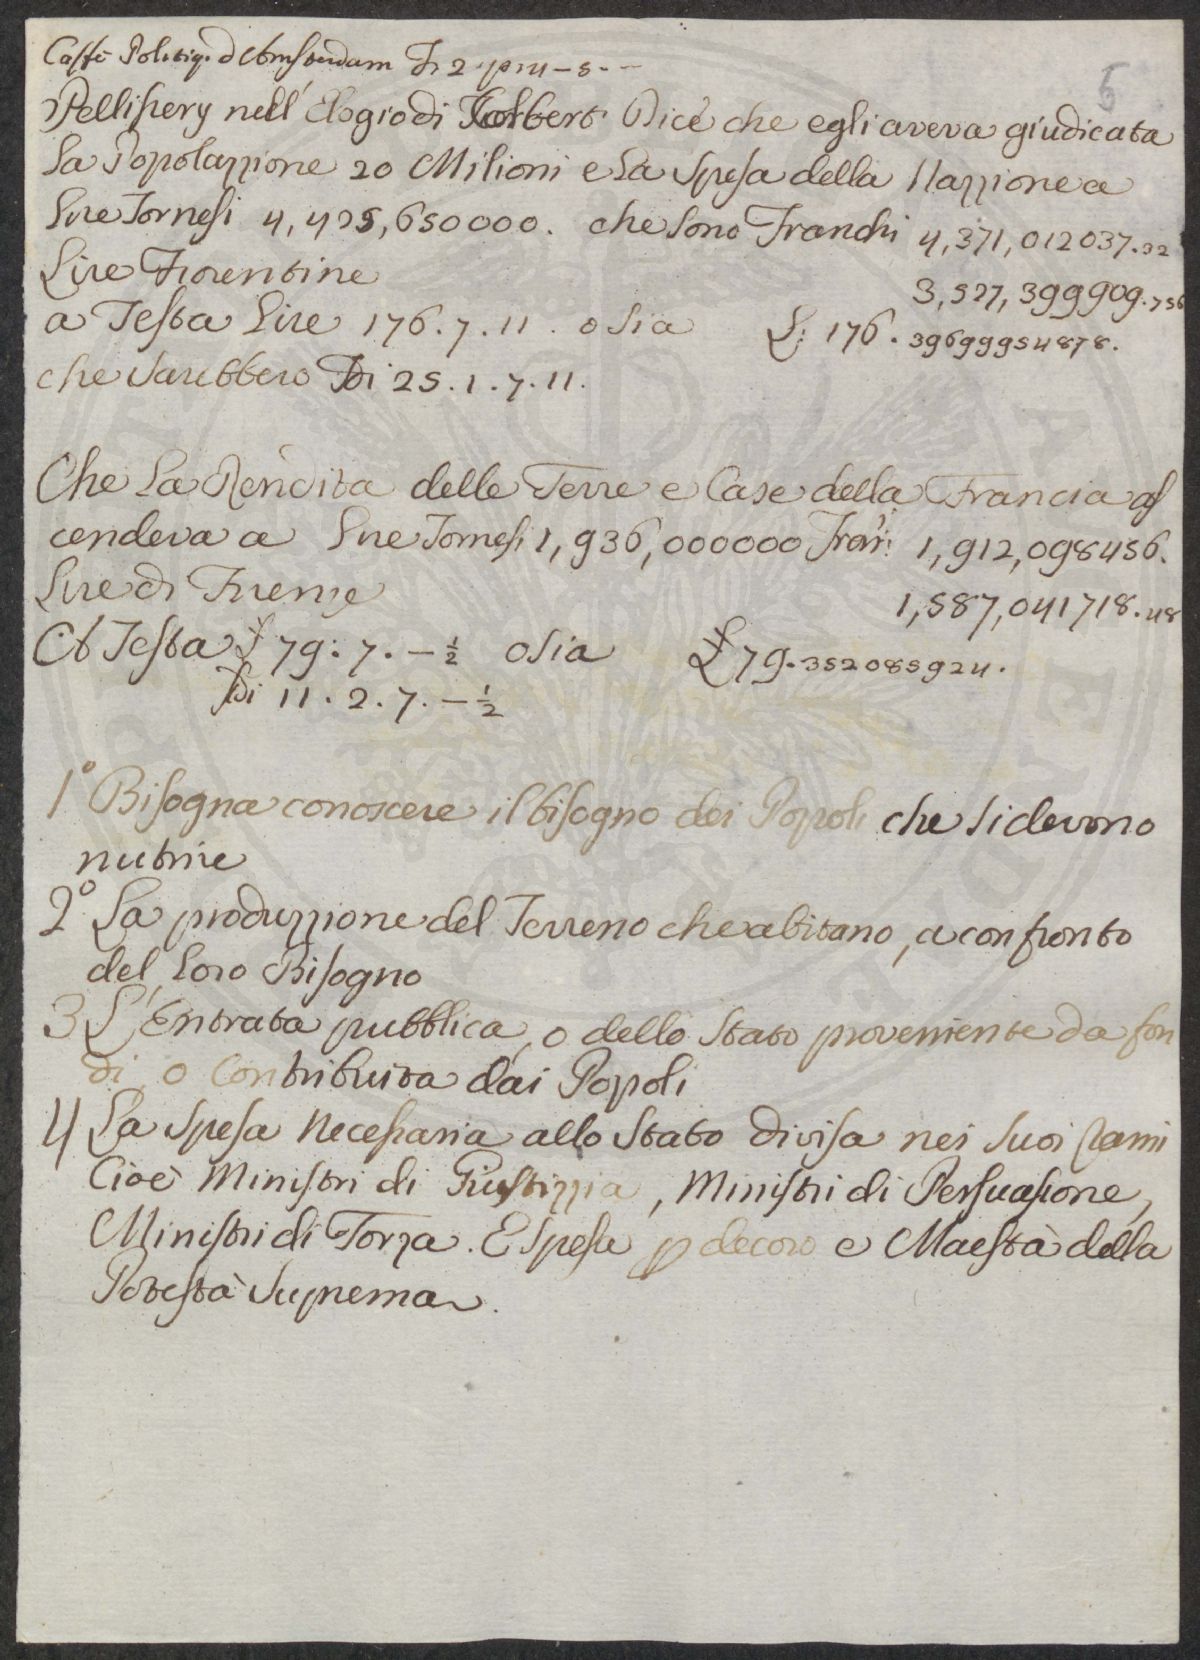 Caffè Politiq. d'Amsterdam
5
Pellissery nell' Elogio di Colbert Dice che egli aveva giudicata
La Popolazzione 20 Milioni e La Spesa della Nazzione a
Lire Tornesi 4,425,650000. che sono Franchi 4,371,012037.32
Lire Fiorentine 3,527,399909.756
a Testa Lire 176.7.11. osia £: 176.39699954878.
che Sarebbero Di 25.1.7.11.
Che La Rendita delle Terre e Case della Francia as
cendeva a Lire Tornesi 1,936,000000 Fran: 1,912,098456.
Lire di Firenze 1,587,041718.48
A Testa £ 79:7.–½ osia £79.352085924.
Di 11.2.7.–½
1° Bisogna conoscere il bisogno dei Popoli che si devono
nutrire
2° La produzzione del Terreno che abitano, a confronto
del Loro Bisogno
3 L'Entrata pubblica, o dello Stato proveniente da fon
di, o Contribuita dai Popoli
4 La Spesa Necessaria allo Stato divisa nei Suoi Rami
Cioè Ministri di Giustizzia, Ministri di Persuasione,
Ministri di Forza. E Spesa p decoro e Maestà della
Potestà Suprema.